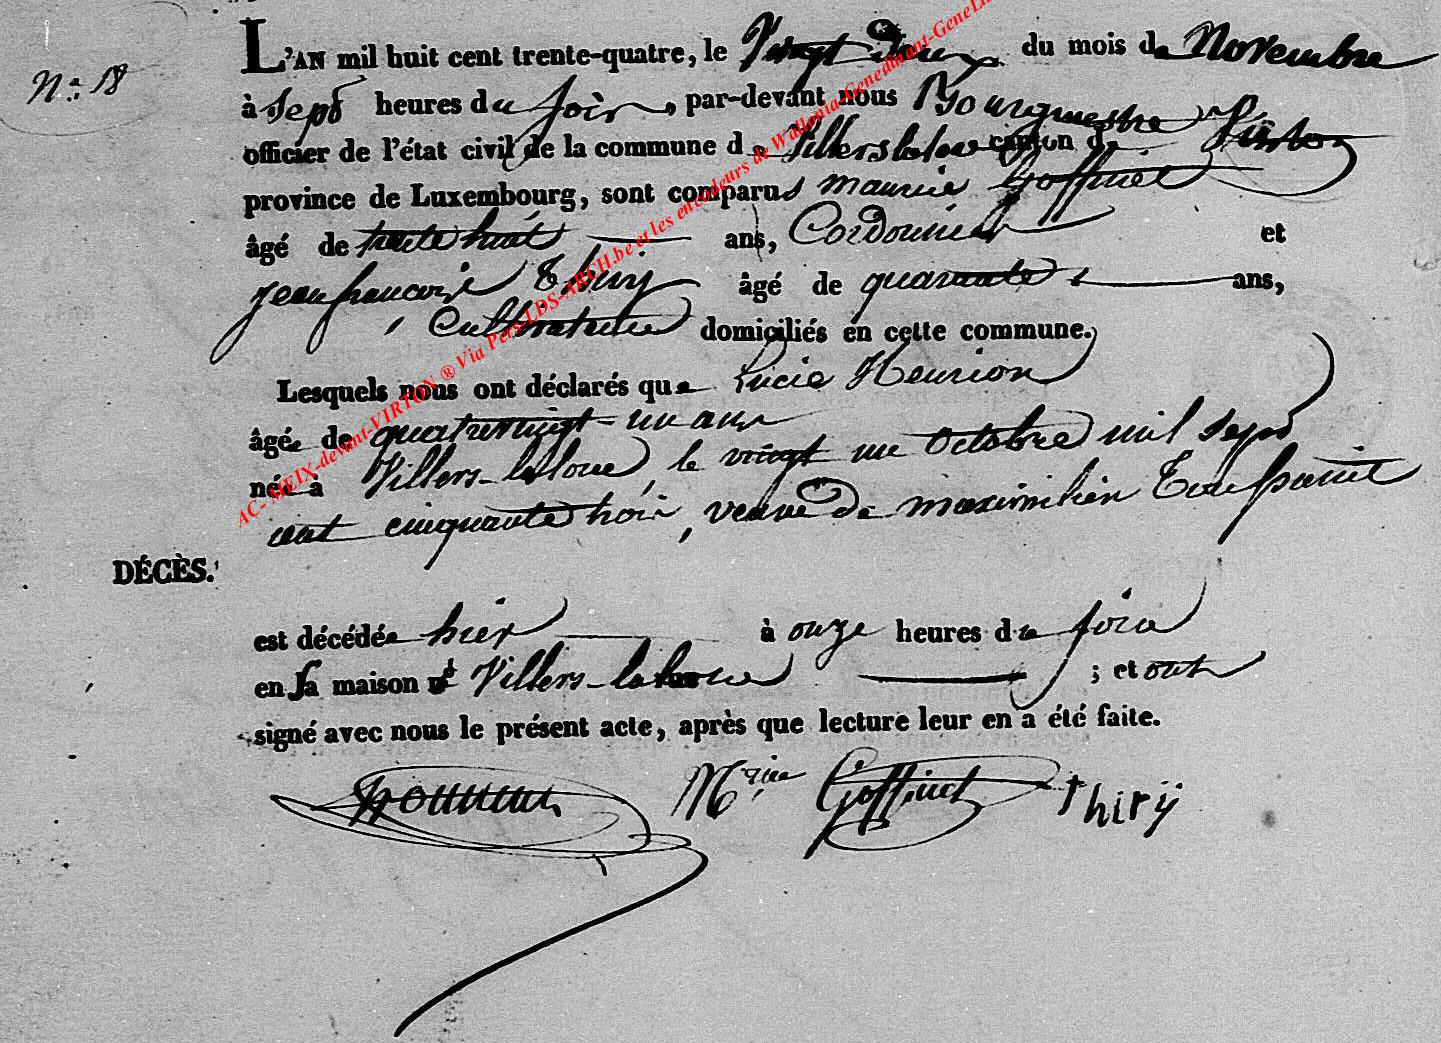 L'AN mil huit cent trente-quatre, le Vingt deux du mois de Novembre
N.° 18
à sept heures du soir, par-devant nous Bourgmestre
officier de l'état civil de la commune de Villers laloue canton de Virton
province de Luxembourg, sont comparus maurice Goffinet
âgé de trente huit ans, Cordonnier et
jean françois Thiry âgé de quarante ans,
, Cultivateur domiciliés en cette commune.
Lesquels nous ont déclarés que Lucie Henrion
âgée de quatrevingt-un ans
née à Villers-laloue, le vingt un Octobre mil sept
cent cinquante trois, veuve de maximilien Toussaint
DÉCÈS.
est décédée hier à onze heures du soir
en sa maison à Villers-laloue ; et ont
signé avec nous le présent acte, après que lecture leur en a été faite.
Mrice Goffinet thirÿ
AC- MEIX-devant-VIRTON ® Via Pers.LDS-ARCH.be et les encodeurs de Wallonia-Genedinant-GeneLux